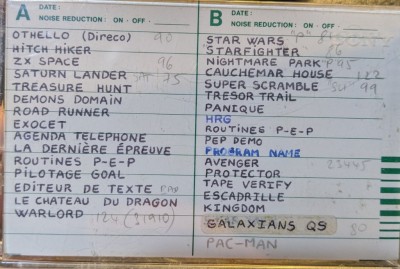 A DATE:
NOISE REDUCTION: ON - OFF -
OTHELLO (Direco) 90
HITCH HIKER
ZX SPACE 96
SATURN LANDER 75
TREASURE HUNT
DEMONS DOMAIN
ROAD RUNNER
EXOCET
AGENDA TELEPHONE
LA DERNIÈRE ÉPREUVE
ROUTINES P-E-P
PILOTAGE GOAL
EDITEUR DE TEXTE
LE CHATEAU DU DRAGON
WARLORD
B DATE:
NOISE REDUCTION: ON - OFF -
STAR WARS "P"
STARFIGHTER 86
NIGHTMARE PARK P95
CAUCHEMAR HOUSE 122
SUPER SCRAMBLE 99
TRESOR TRAIL
PANIQUE
HRG
ROUTINES P-E-P
PEP DEMO
PROGRAM NAME
AVENGER
PROTECTOR
TAPE VERIFY
ESCADRILLE
KINGDOM
GALAXIANS QS 80
PAC-MAN